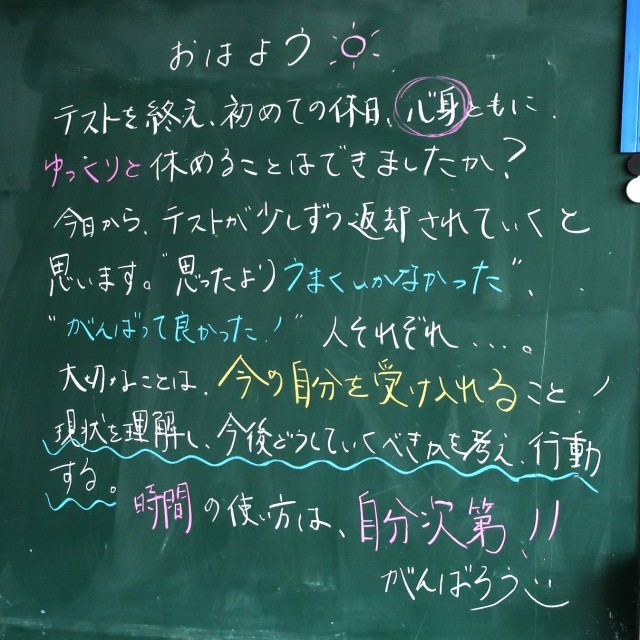 おはよう
テストを終え、初めての休日、心身ともに、
ゆっくりと休めることはできましたか?
今日から、テストが少しずつ返却されていくと
思います。"思ったよりうまくいかなかった"、
"がんばって良かった!" 人それぞれ...。
大切なことは、今の自分を受け入れること!
現状を理解し、今後どうしていくべきかを考え、行動
する。
時間の使い方は、自分次第!!
がんばろう